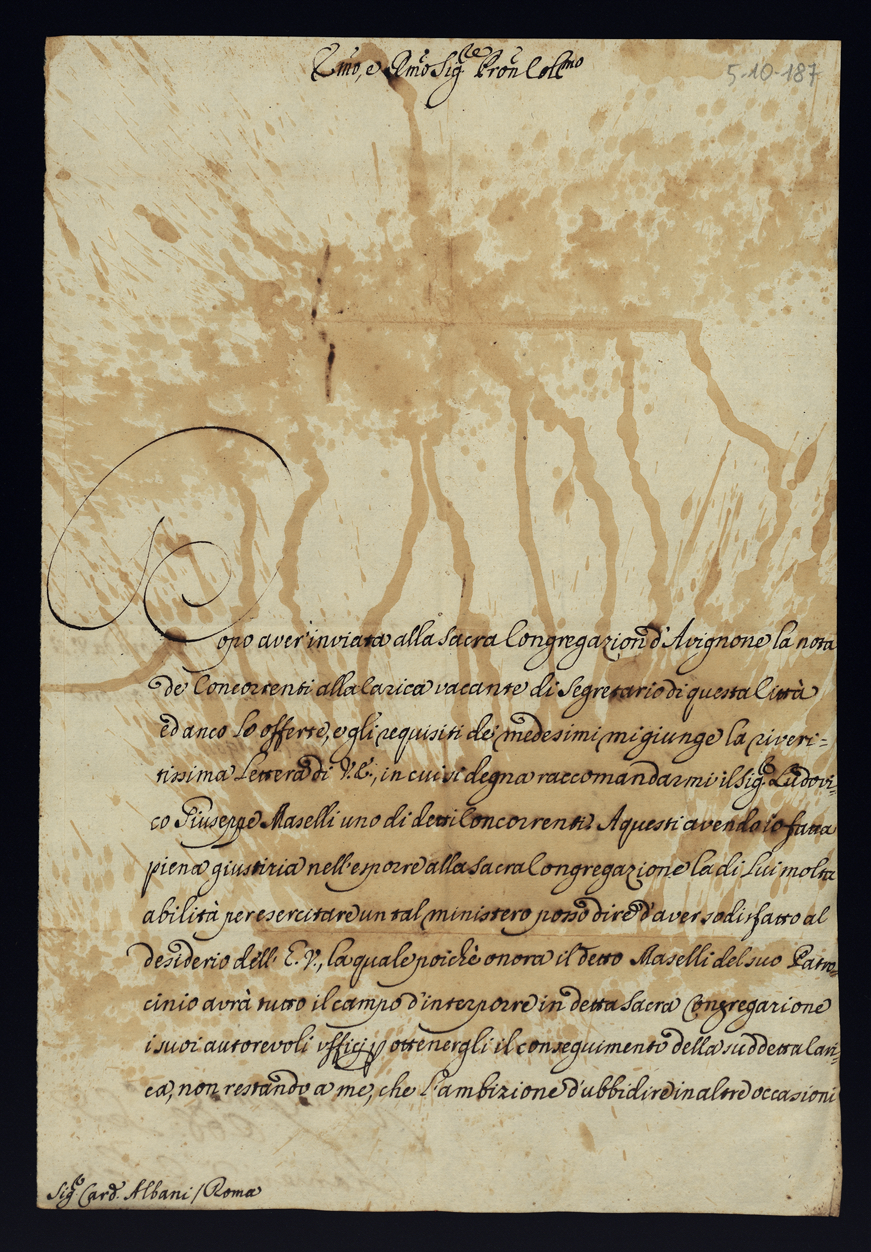 Em͠o, e Rm͠o Sig.re Pron͠ Col.mo
5-10-187
Dopo aver' inviata alla Sacra Congregazion d'Avignone la nota
de' Concorrenti alla Carica vacante di Segretario di questa Città
ed anco le offerte, e gli requisiti dei medesimi mi giunge la riveri=
tissima Lettera di V.E., in cui si degna raccomandarmi il Sig.r Ludovi=
co Giuseppe Maselli uno di detti Concorrenti. A questi avendo io fatta
piena giustizia nell'esporre alla Sacra Congregazione la di Lui molta
abilità per esercitare un tal ministero posso dire d'aver sodisfatto al
desiderio dell' E.V., la quale poichè onora il detto Maselli del suo Patro=
cinio avrà tutto il campo d'interporre in detta Sacra Congregazione
i suoi autorevoli ufficij p ottenergli il conseguimento della suddetta Cari=
ca, non restando a me, che l'ambizione d'ubbidire in altre occasioni
Sig.r Card. Albani / Roma